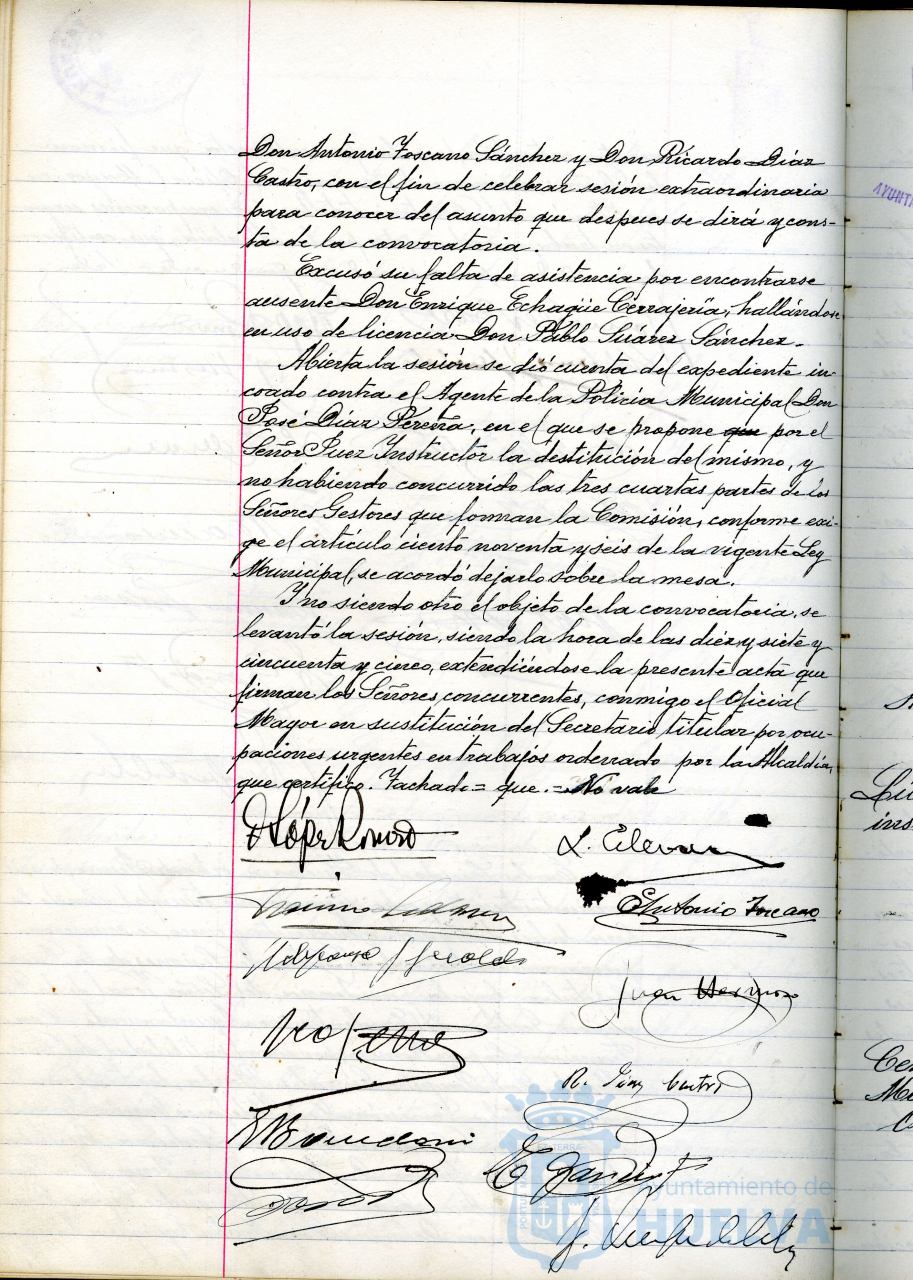 Don Antonio Toscano Sánchez y Don Ricardo Díaz
Castro, con el fin de celebrar sesión extraordinaria
para conocer del asunto que despues se dirá y cons-
ta de la convocatoria.
Excusó su falta de asistencia por encontrarse
ausente Don Enrique Echagüe Cerrajería, hallándose
en uso de licencia Don Pablo Suárez Sánchez.
Abierta la sesión se dió cuenta del expediente in-
coado contra el Agente de la Policía Municipal Don
José Díaz Pereña, en el que se propone que por el
Señor Juez Instructor la destitución del mismo, y
no habiendo concurrido las tres cuartas partes de los
Señores Gestores que forman la Comisión, conforme exi-
ge el artículo ciento noventa y seis de la vigente Ley
Municipal, se acordó dejarlo sobre la mesa.
Y no siendo otro el objeto de la convocatoria, se
levantó la sesión, siendo la hora de las diez y siete y
cincuenta y cinco, extendiéndose la presente acta que
firman los Señores concurrentes, conmigo el Oficial
Mayor en sustitución del Secretario titular por ocu-
paciones urgentes en trabajos ordenado por la Alcaldía,
que certifico. Tachado = que. = No vale
Antonio Toscano
Juan
R. Díaz Castro
Ayuntamiento de
HUELVA
AYUNTA